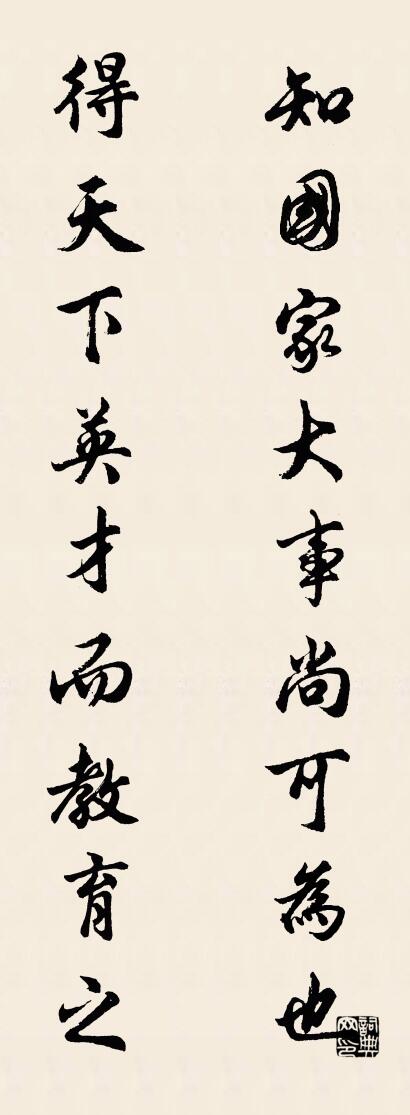 知國家大事尚可為也
得天下英才而教育之